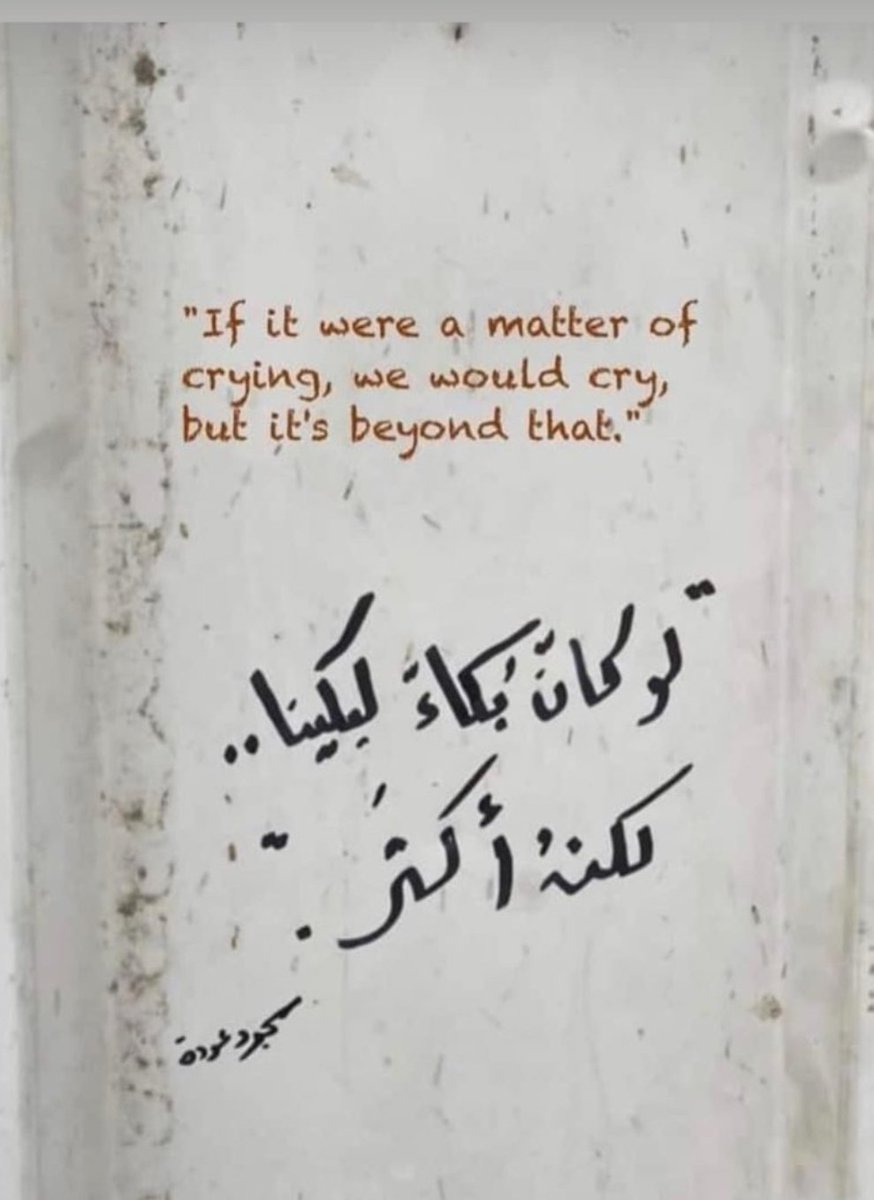 "If it were a matter of
crying, we would cry,
but it's beyond that."
"لو كانَ بُكاءً لبكينا..
لكنهُ أكثرُ . "